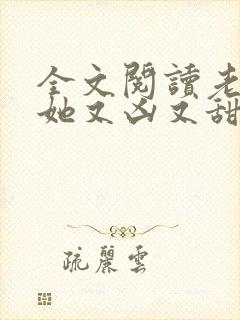 全文閱讀老
她又凶又甜
疏麗雲